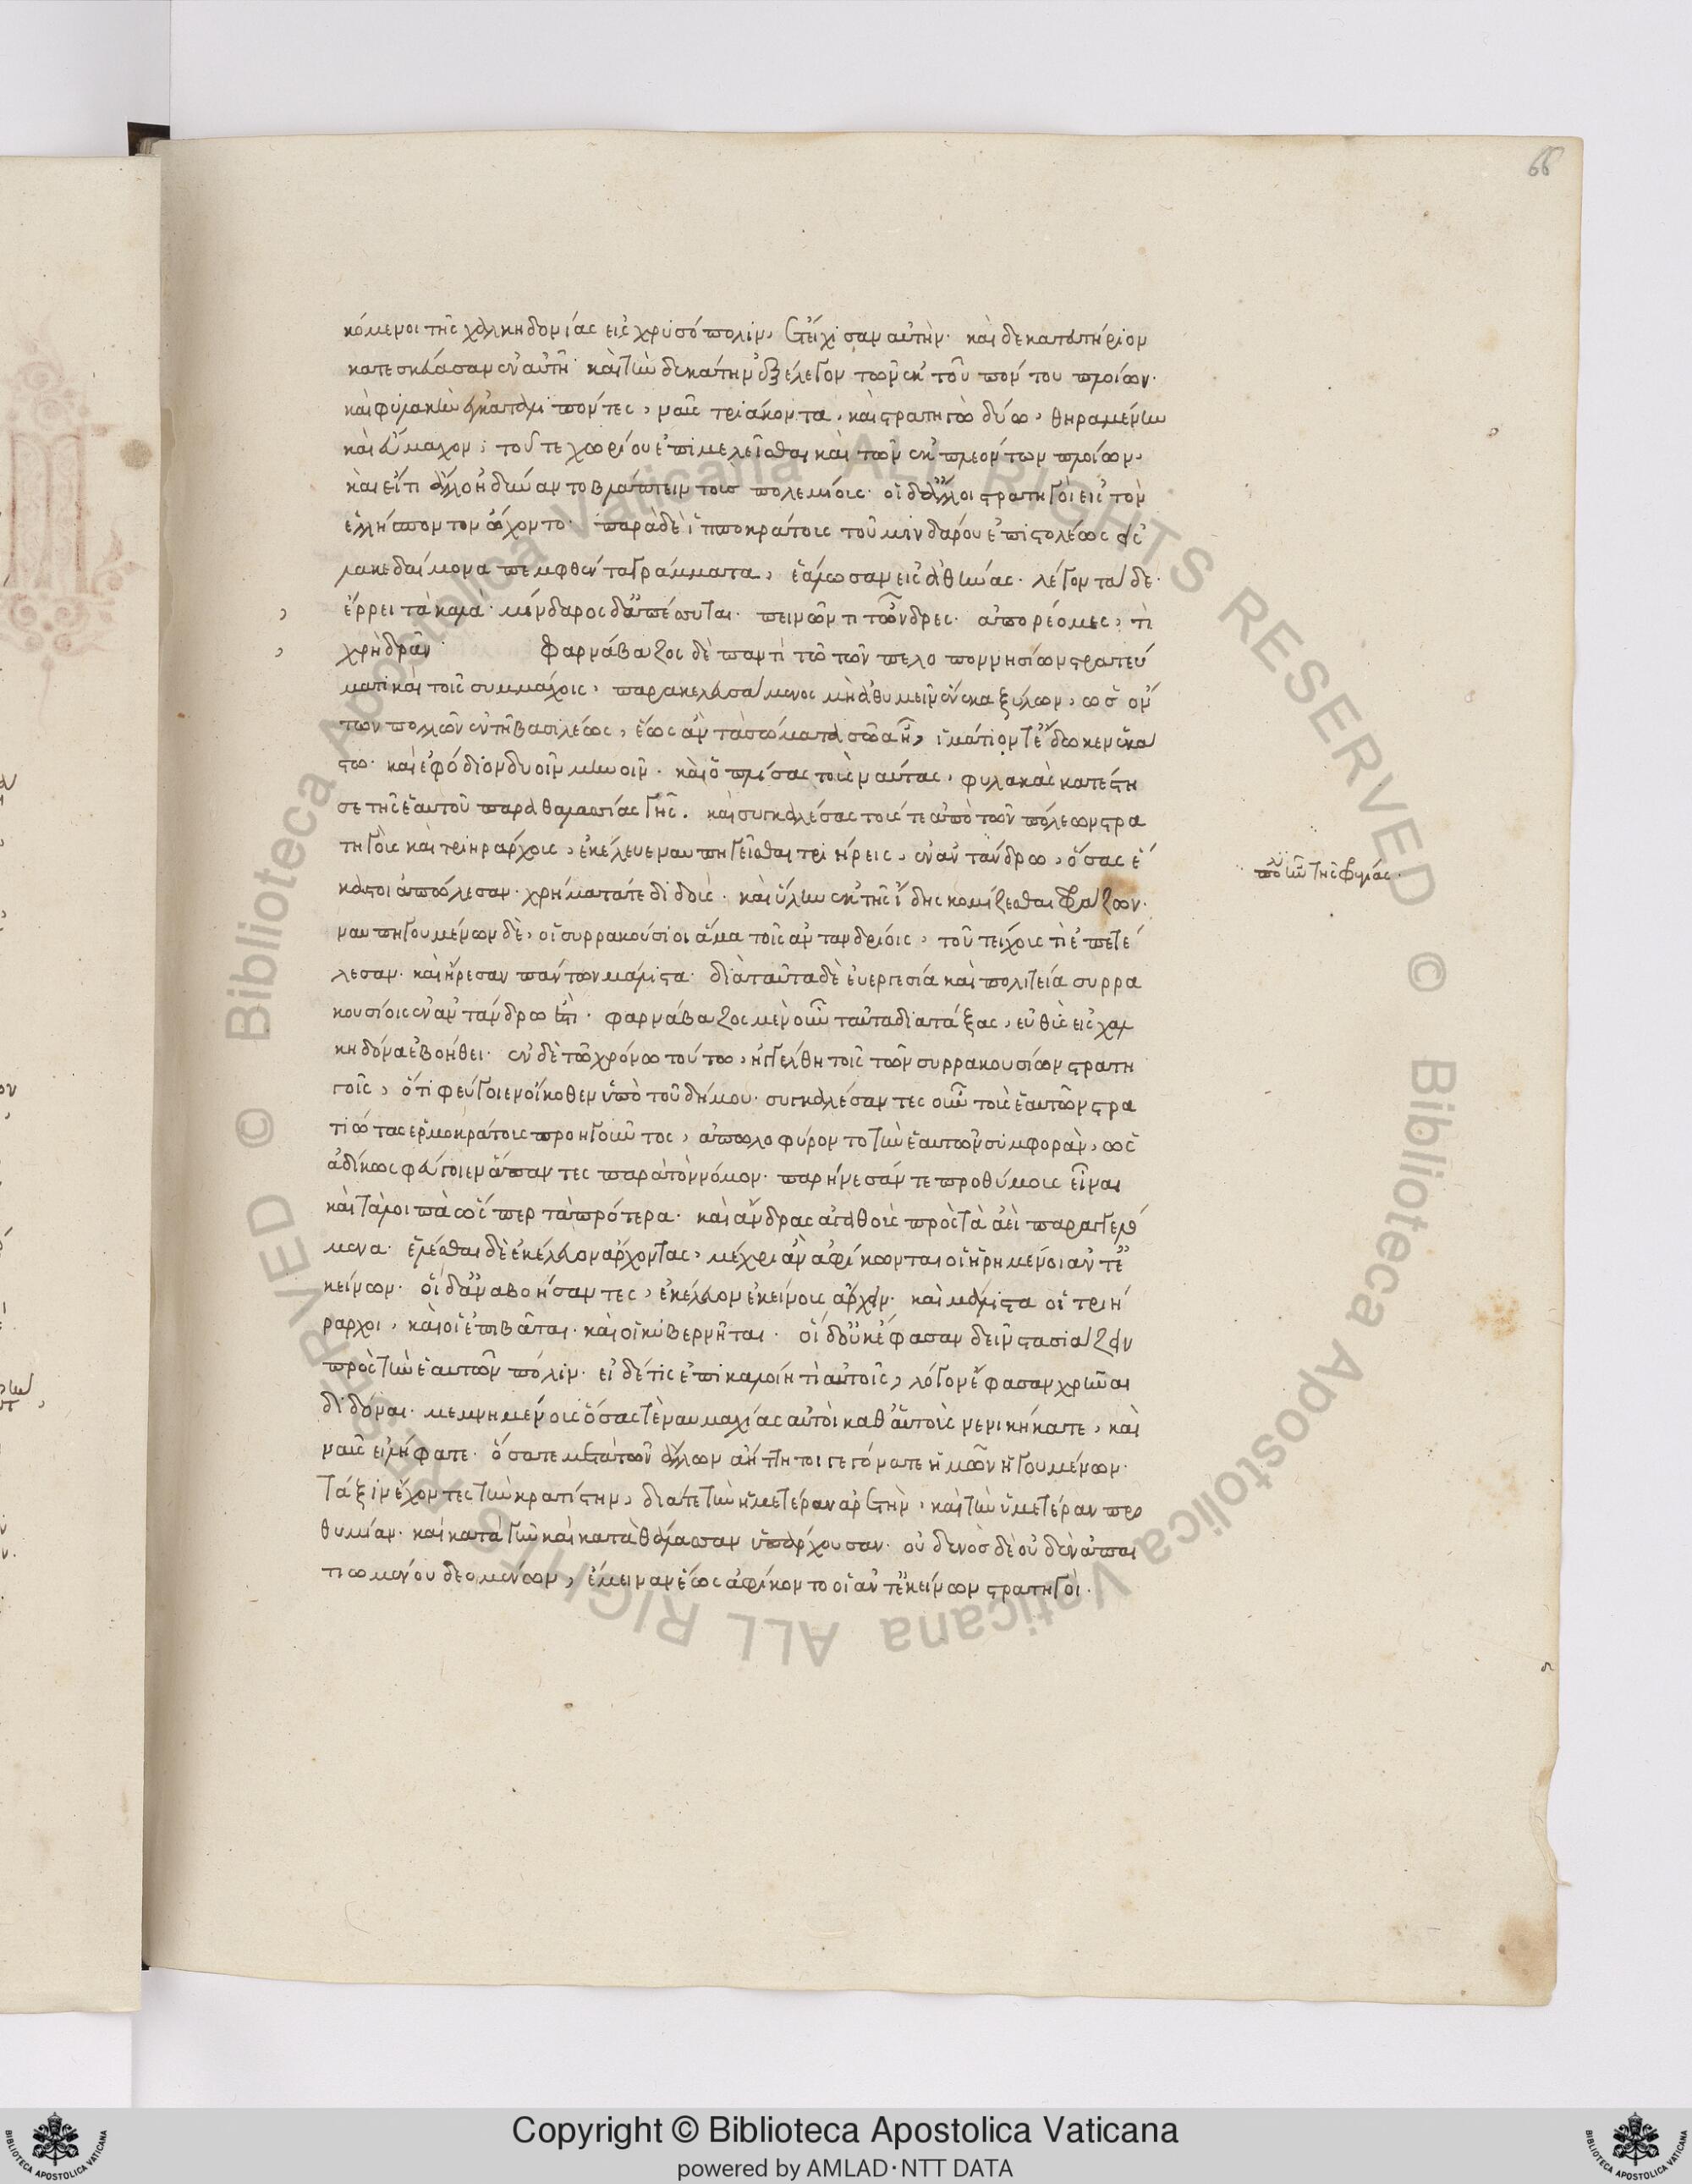 66
κόμενοι τῆς χαλκηδονίας εἰς χρυσόπολιν, ἐτείχισαν αὐτήν· καὶ δεκατευτήριον
κατεσκεύασαν ἐν αὐτῇ· καὶ τὴν δεκάτην ἐξέλεγον τῶν ἐκ τοῦ πόντου πλοίων·
καὶ φυλακὴν ἐγκαταλιπόντες, ναῦς τριάκοντα, καὶ στρατηγὼ δύω, θηραμένην
καὶ εὔμαχον, τοῦ τε χωρίου ἐπιμελεῖσθαι καὶ τῶν ἐκπλεόντων πλοίων,
καὶ εἴ τι ἄλλο ἠδύναντο βλάπτειν τοὺς πολεμίους· οἱ δ' ἄλλοι στρατηγοὶ εἰς τὸν
ἑλλήσποντον ᾤχοντο· παρὰ δὲ ἱπποκράτους τοῦ μινδάρου ἐπιστολέως εἰς
λακεδαίμονα πεμφθέντα γράμματα, ἑάλωσαν εἰς ἀθήνας· λέγοντα δε·
ἔρρει τὰ καλά· μίνδαρος δ' ἀπέσσυται· πεινῶντι τὦνδρες· ἀπορέομες, τί
χρὴ δρᾶν· Φαρνάβαζος δὲ παντὶ τῷ τῶν πελοποννησίων στρατεύ
ματι καὶ τοῖς συμμάχοις, παρακελευσάμενος μὴ ἀθυμεῖν ἕνεκα ξύλων, ὡς ὄν
των πολλῶν ἐν τῇ βασιλέως, ἕως ἂν τὰ σώματα σῶα ᾖ, ἱμάτιόν τ' ἔδωκεν ἑκά
στω· καὶ ἐφόδιον δυοῖν μηνοῖν· καὶ ὁπλίσας τοὺς ναύτας, φυλακὰς κατέστη
σε τῆς ἑαυτοῦ παραθαλαττίας γῆς. καὶ συγκαλέσας τούς τε ἀπὸ τῶν πόλεων στρα
τηγοὺς καὶ τριηράρχους, ἐκέλευε ναυπηγεῖσθαι τριήρεις, ἐν ἀντάνδρω, ὅσας ἕ
καστοι ἀπώλεσαν· χρήματά τε διδοὺς· καὶ ὕλην ἐκ τῆς ἴδης κομίζεσθαι φράζων·
ναυπηγουμένων δὲ, οἱ συρρακούσιοι ἅμα τοῖς ἀντανδρίοις, τοῦ τείχους τι ἐπετέ
λεσαν· καὶ ἤρεσαν πάντων μάλιστα· διὰ ταῦτα δὲ εὐεργεσία καὶ πολιτεία συρρα
κουσίοις ἐν ἀντάνδρω ἐστι· φαρνάβαζος μὲν οὖν ταῦτα διατάξας, εὐθὺς εἰς χαλ
κηδόνα ἐβοήθει· ἐν δὲ τῶ χρόνω τούτω, ἠγγέλθη τοῖς τῶν συρρακουσίων στρατη
γοῖς, ὅτι φεύγοιεν οἴκοθεν ὑπὸ τοῦ δήμου· συγκαλέσαντες οὖν τοὺς ἑαυτῶν στρα
τιώτας ἑρμοκράτους προηγοῦντος, ἀπωλοφύροντο τὴν ἑαυτῶν συμφοράν, ὡς
ἀδίκως φεύγοιεν ἅπαντες παρὰ τὸν νόμον· παρήνεσάν τε προθύμους εἶναι
καὶ τὰ λοιπὰ ὥσπερ τὰ πρότερα· καὶ ἄνδρας ἀγαθοὺς πρὸς τὰ ἀεὶ παραγγελλό
μενα· ἑλέσθαι δὲ ἐκέλευον ἄρχοντας, μέχρι ἂν ἀφίκωνται οἱ ᾑρημένοι ἀντ' ἐ
κείνων· οἱ δ' ἀναβοήσαντες, ἐκέλευον ἐκείνους ἄρχειν· καὶ μάλιστα οἱ τριή
ραρχοι, καὶ οἱ ἐπιβάται· καὶ οἱ κυβερνῆται· οἱ δ' οὐκ ἔφασαν δεῖν στασιάζειν
πρὸς τὴν ἑαυτῶν πόλιν· εἰ δέ τις ἐπικαλοίη τι αὐτοῖς, λόγον ἔφασαν χρῆναι
διδόναι· μεμνημένους ὅσας τὲ ναυμαχίας αὐτοὶ καθ' αὑτοὺς νενικήκατε, καὶ
ναῦς εἰλήφατε· ὅσα τε μετὰ τῶν ἄλλων ἀήττητοι γεγόνατε ἡμῶν ἡγουμένων·
τάξιν ἔχοντες τὴν κρατίστην, διά τε τὴν ἡμετέραν ἀρετὴν, καὶ τὴν ὑμετέραν προ
θυμίαν· καὶ κατὰ γῆν καὶ κατὰ θάλασσαν ὑπάρχουσαν· οὐδενὸς δὲ οὐδὲν ἐπαι
τιωμένου δεομένων, ἔμειναν ἕως ἀφίκοντο οἱ ἀντ' ἐκείνων στρατηγοὶ·
Copyright © Biblioteca Apostolica Vaticana
powered by AMLAD·NTT DATA